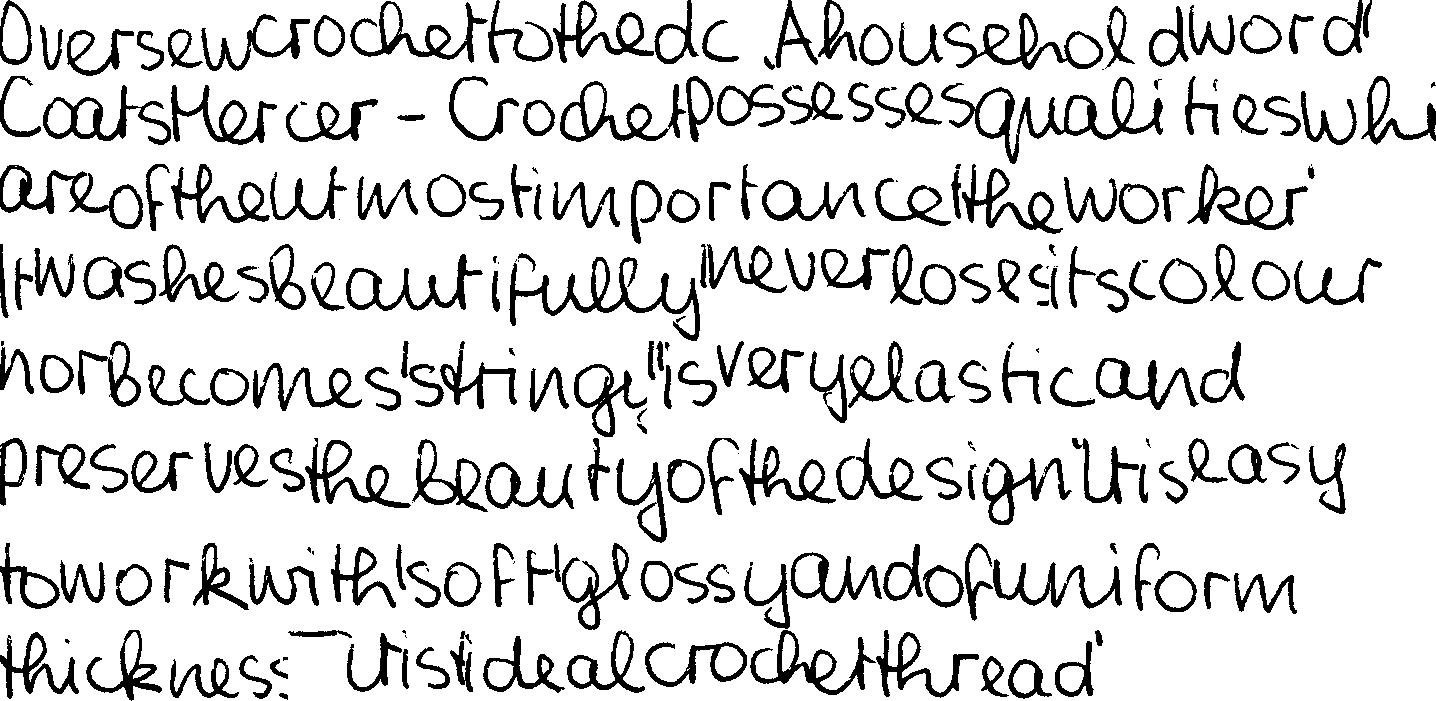 Oversew crochet to the dc. A household word'
Coats Mercer - Crochet possesses qualities whi
are of the utmost importance 'the worker'
It washes beautifully" never loses its colour
nor becomes 'stringy" is very elastic and
preserves the beauty of the design" It is easy
to work with 'soft' glossy and of uniform
thickness - It is ideal crochet thread'